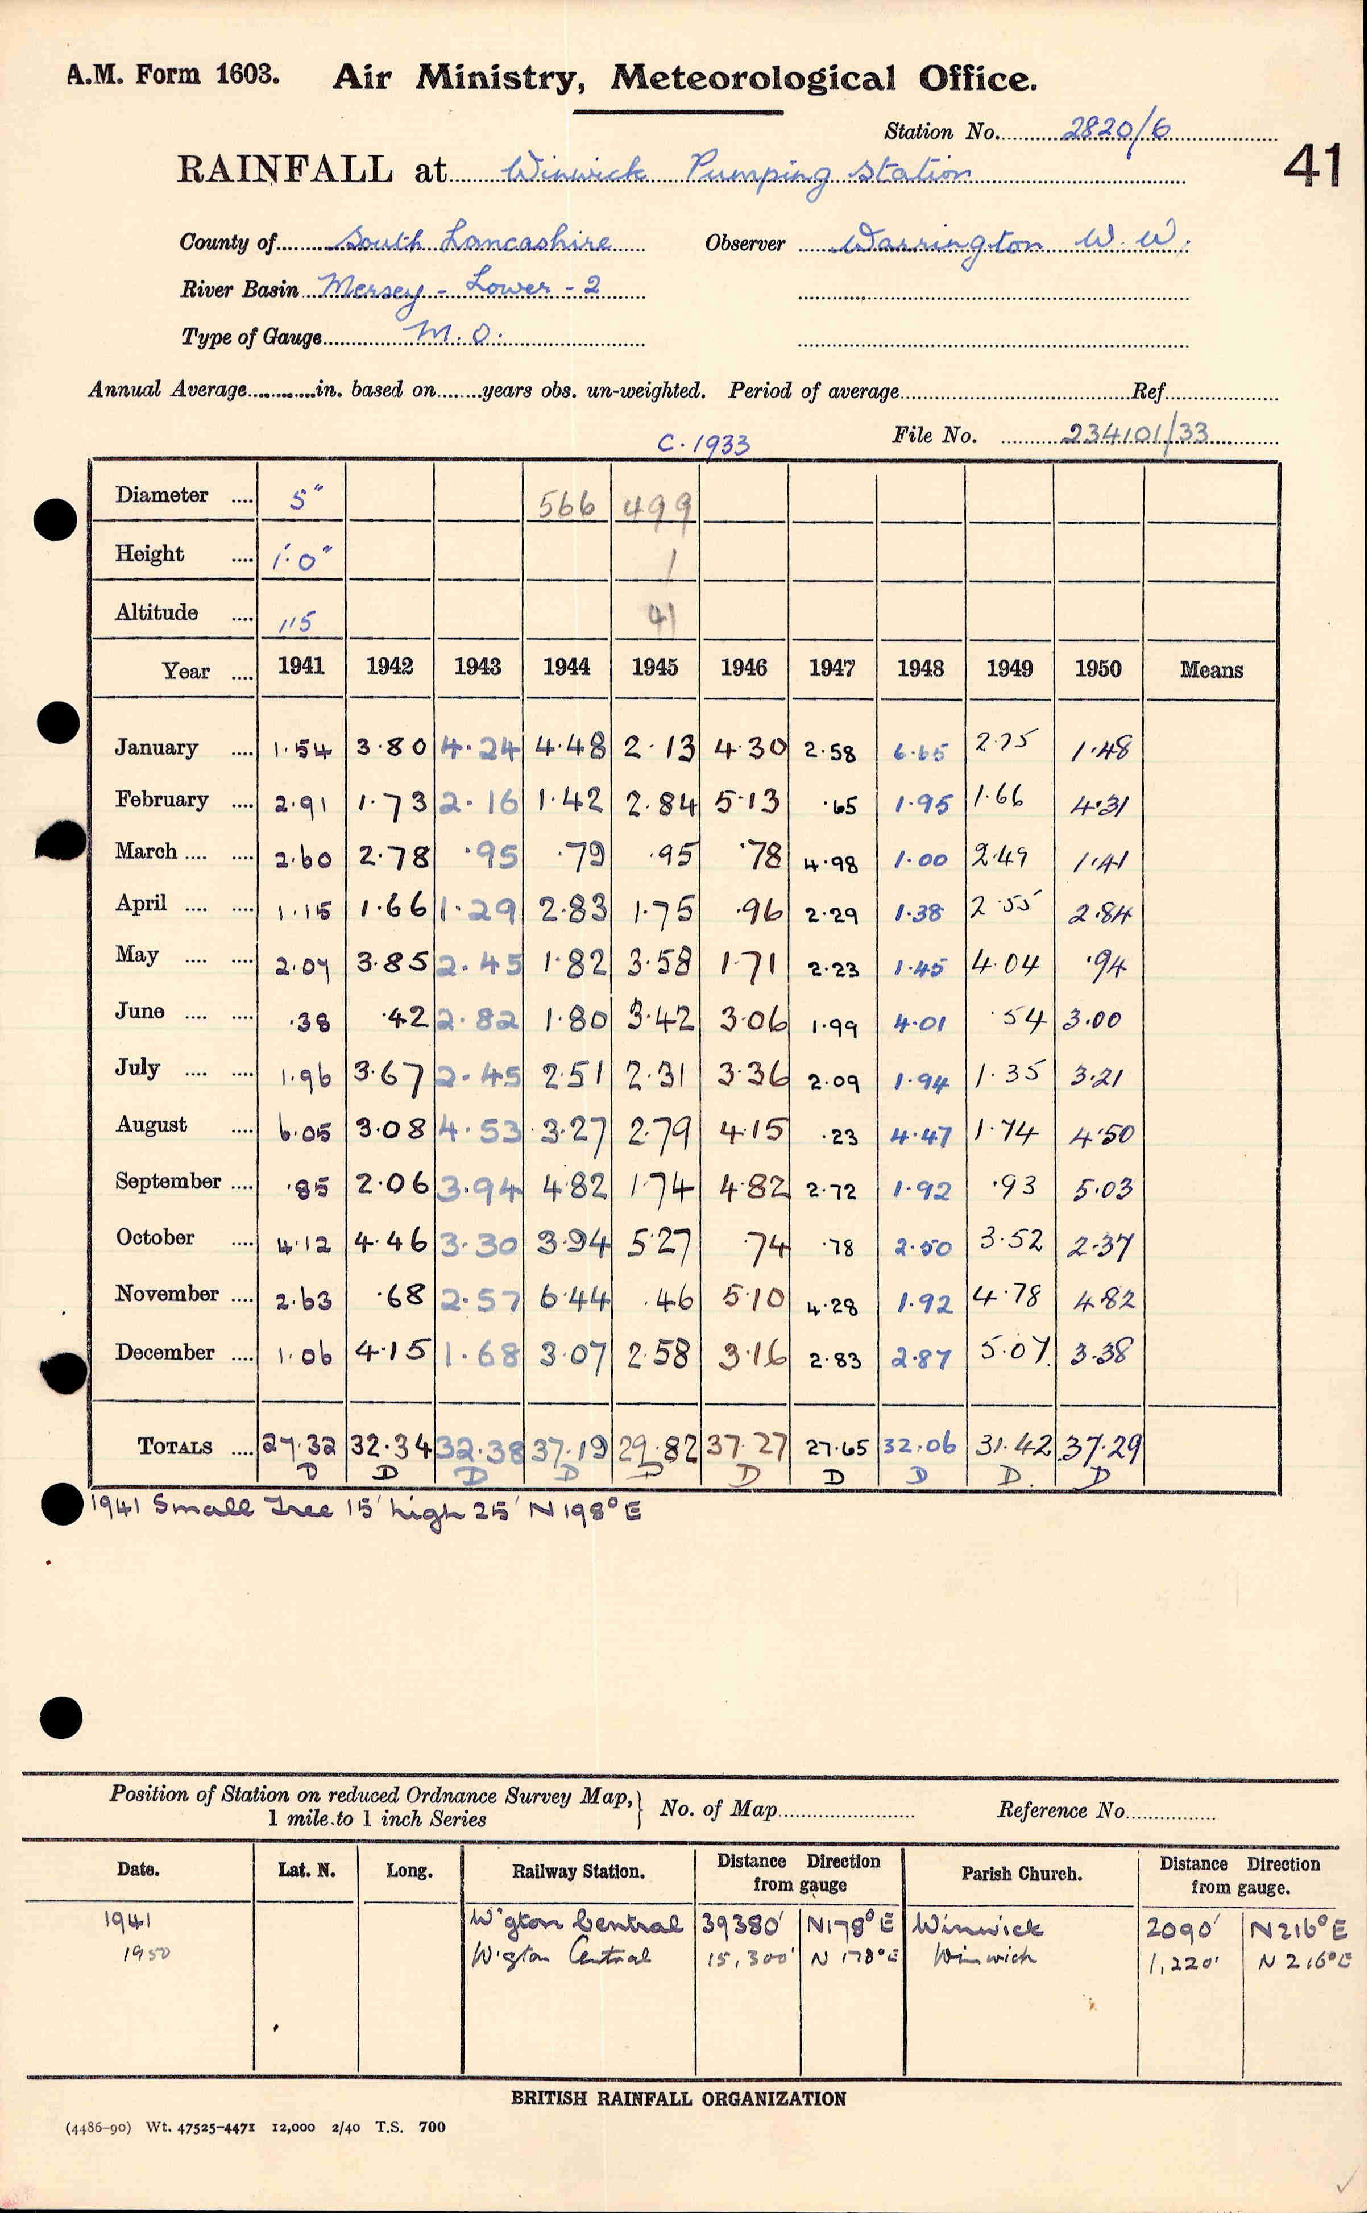 A.M. Form 1603. Air Ministry, Meteorological Office.
Station No. 2820/6
41
RAINFALL at Winwick Pumping Station
County of South Lancashire Observer Warrington W. W.
River Basin Mersey - Lower - 2
Type of Gauge M.O.
Annual Average in. based on years obs. un-weighted. Period of average Ref.
C. 1933 File No. 234101/33
Diameter 5" 566 499
Height 1'.0" 1
Altitude 115 41
Year 1941 1942 1943 1944 1945 1946 1947 1948 1949 1950 Means
January 1.54 3.80 4.24 4.48 2.13 4.30 2.58 6.65 2.75 1.48
February 2.91 1.73 2.16 1.42 2.84 5.13 .65 1.95 1.66 4.31
March 2.60 2.78 .95 .79 .95 .78 4.98 1.00 2.49 1.41
April 1.15 1.66 1.29 2.83 1.75 .96 2.29 1.38 2.55 2.84
May 2.07 3.85 2.45 1.82 3.58 1.71 2.23 1.45 4.04 .94
June .38 .42 2.82 1.80 3.42 3.06 1.99 4.01 .54 3.00
July 1.96 3.67 2.45 2.51 2.31 3.36 2.09 1.94 1.35 3.21
August 6.05 3.08 4.53 3.27 2.79 4.15 .23 4.47 1.74 4.50
September .85 2.06 3.94 4.82 1.74 4.82 2.72 1.92 .93 5.03
October 4.12 4.46 3.30 3.94 5.27 .74 .78 2.50 3.52 2.37
November 2.63 .68 2.57 6.44 .46 5.10 4.28 1.92 4.78 4.82
December 1.06 4.15 1.68 3.07 2.58 3.16 2.83 2.87 5.07 3.38
TOTALS 27.32 32.34 32.38 37.19 29.82 37.27 27.65 32.06 31.42 37.29
D D D D D D D D D. D
1941 Small Tree 15' high 25' N 198° E
Position of Station on reduced Ordnance Survey Map, 1 mile to 1 inch Series } No. of Map Reference No.
Date. Lat. N. Long. Railway Station. Distance Direction from gauge Parish Church. Distance Direction from gauge.
1941 W'gton Central 39380' N178°E Winwick 2090' N216°E
1950 W'gton Central 15,300' N 178°E Winwick 1,220' N 216°E
BRITISH RAINFALL ORGANIZATION
(4486-90) Wt. 47525-4471 12,000 2/40 T.S. 700